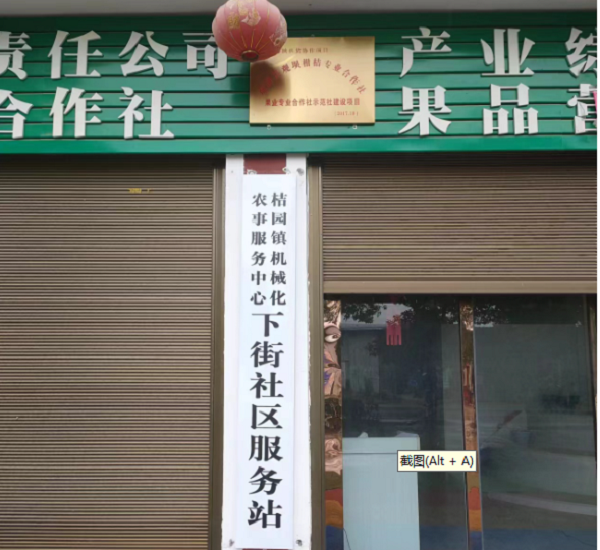 责任公司
合作社
产业综
果品营
柑桔专业合作社
果业专业合作社示范社建设项目
桔园镇机械化
农事服务中心
下街社区服务站
截图(Alt + A)